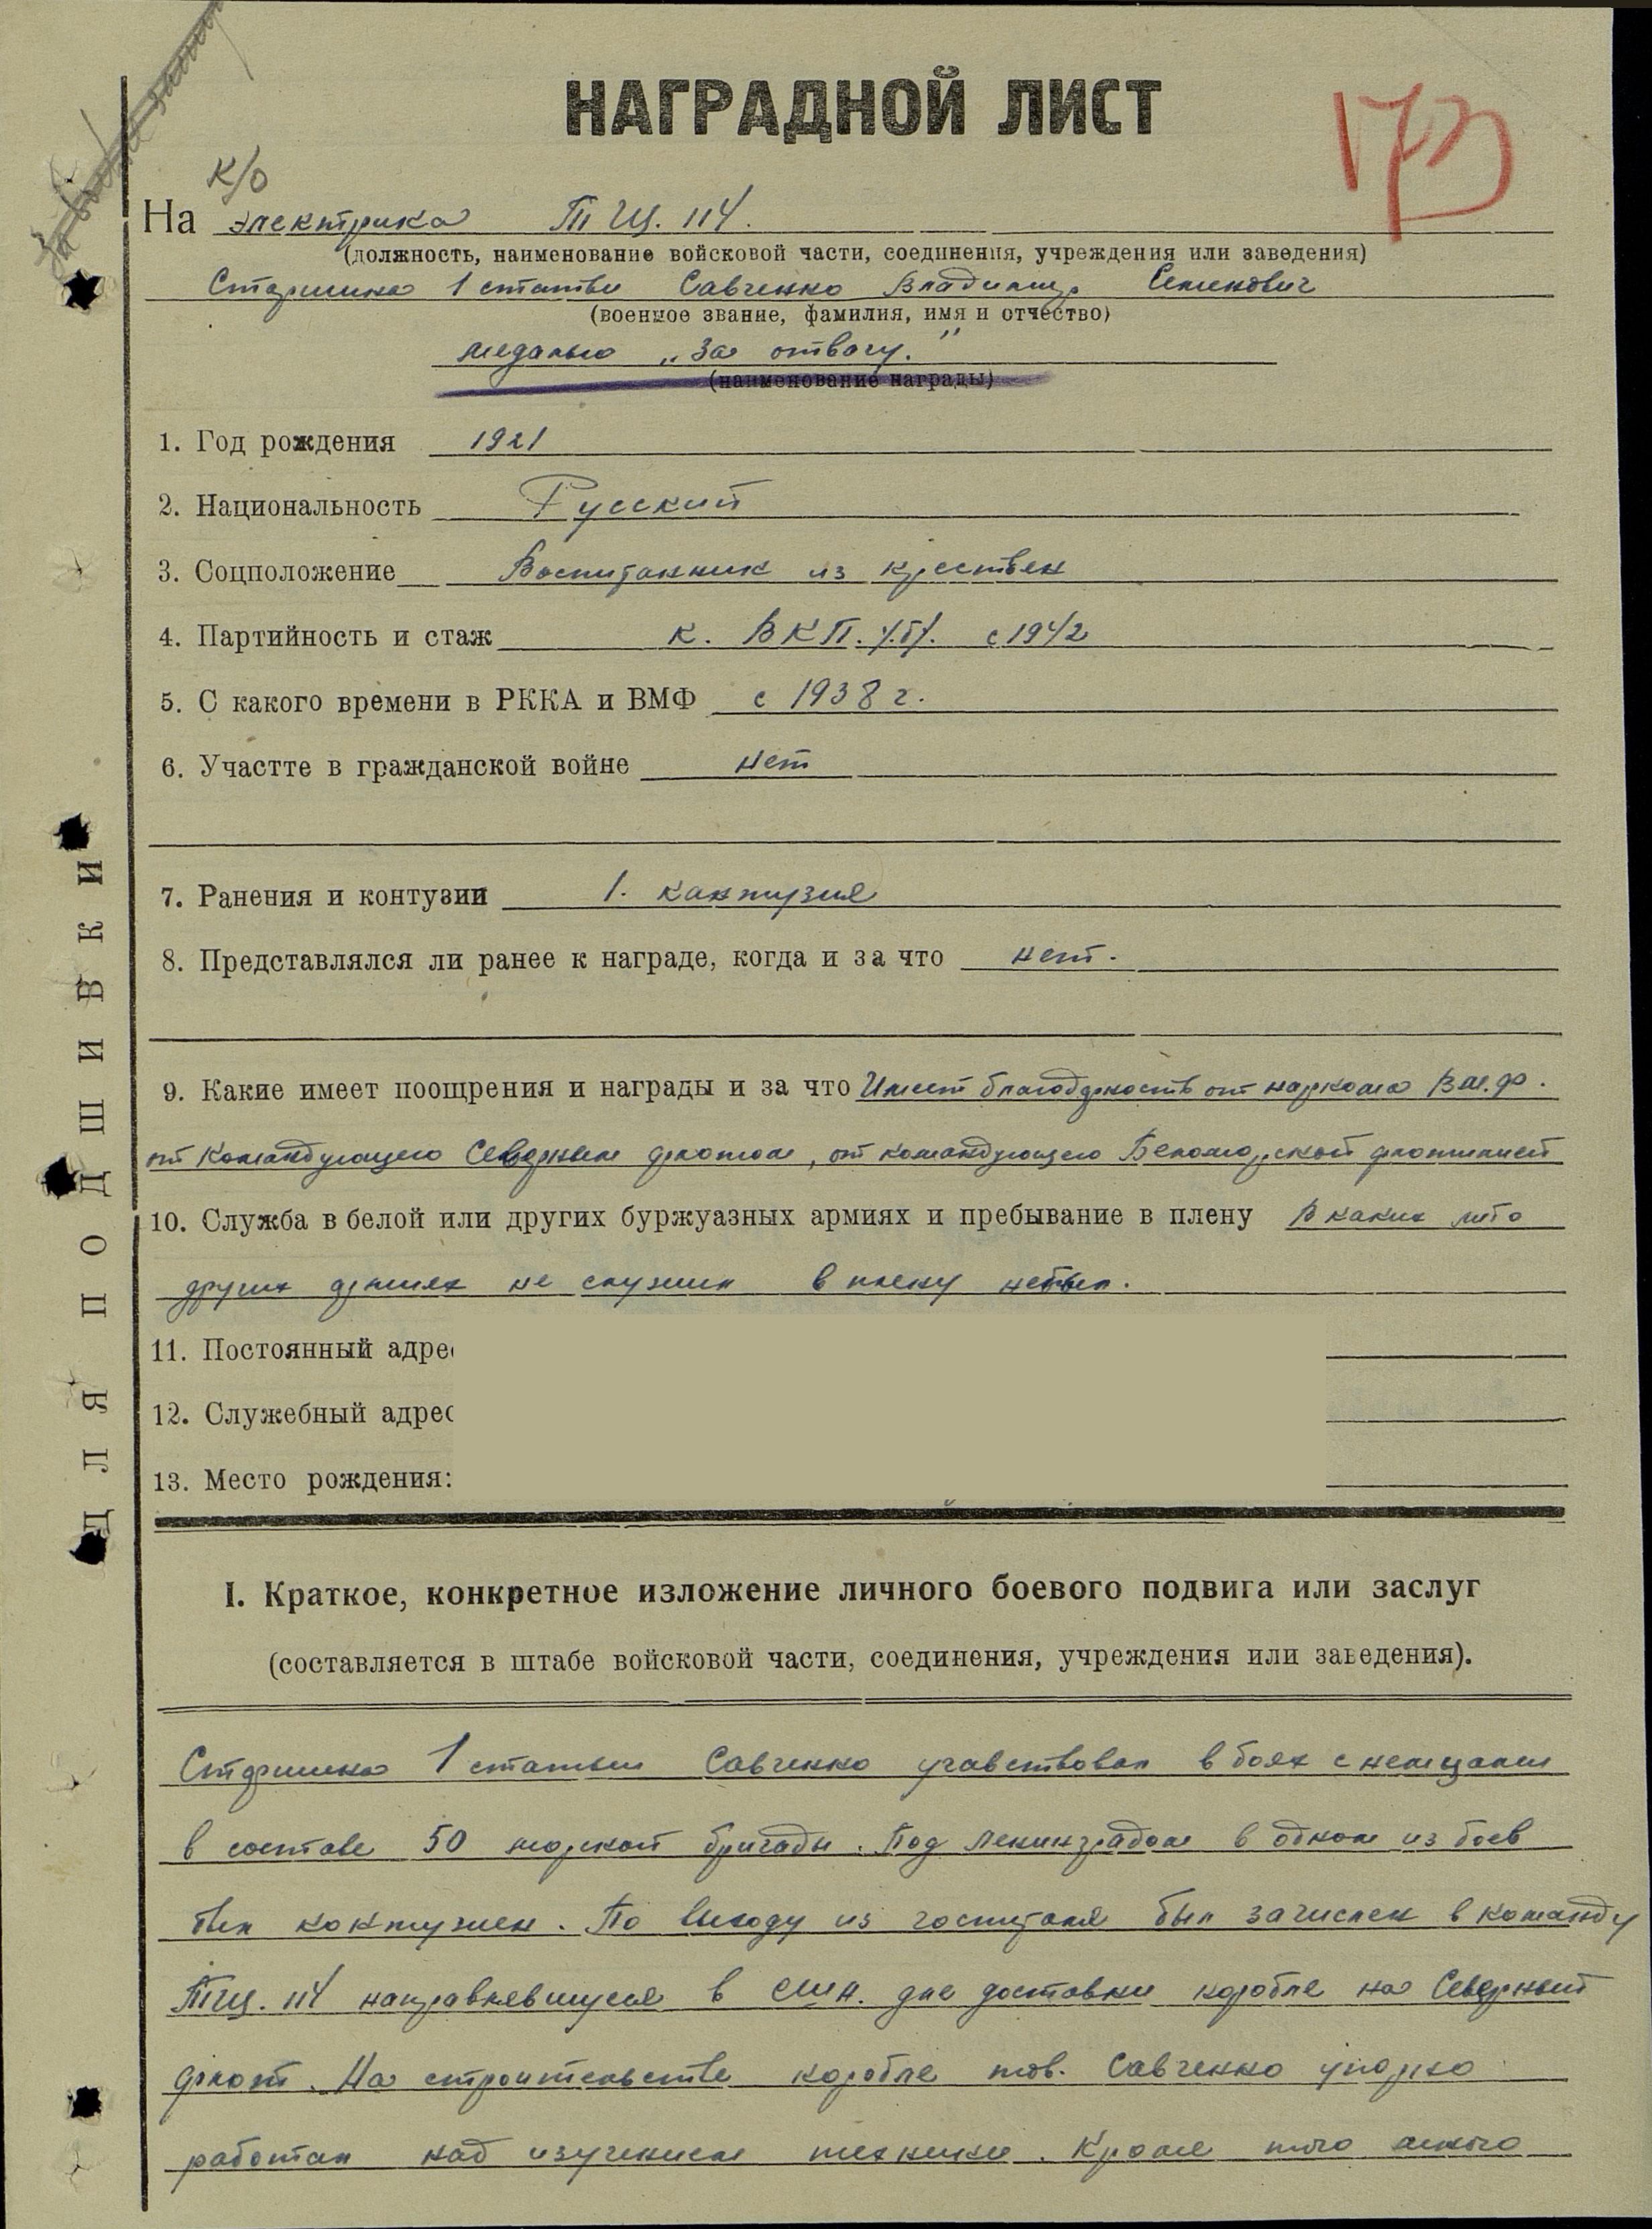 НАГРАДНОЙ ЛИСТ
173
к/о
На электрика ТЩ. 114.
(должность, наименование войсковой части, соединения, учреждения или заведения)
Старшина 1 статьи Савченко Владимир Семенович
(военное звание, фамилия, имя и отчество)
медалью „За отвагу."
(наименование награды)
1. Год рождения 1921
2. Национальность Русский
3. Соцположение Воспитанник из крестьян
4. Партийность и стаж к. ВКП./б/. с 1942
5. С какого времени в РККА и ВМФ с 1938 г.
6. Участте в гражданской войне нет
7. Ранения и контузии 1. контузия
8. Представлялся ли ранее к награде, когда и за что нет.
9. Какие имеет поощрения и награды и за что Имеет благодарность от наркома В.м.ф.
от командующего Северным флотом, от командующего Беломорской флотилией
10. Служба в белой или других буржуазных армиях и пребывание в плену В каких либо
других армиях не служил в плену небыл.
11. Постоянный адрес
12. Служебный адрес
13. Место рождения:
ДЛЯ ПОДШИВКИ
I. Краткое, конкретное изложение личного боевого подвига или заслуг
(составляется в штабе войсковой части, соединения, учреждения или заведения).
Старшина 1 статьи Савченко учавствовал в боях с немцами
в составе 50 морской бригады. Под Ленинградом в одном из боев
был контужен. По выходу из госпиталя был зачислен в команду
ТЩ. 114 направлявшуюся в сша. для доставки корабля на Северный
флот. На строительстве корабля тов. Савченко упорно
работал над изучением техники. Кроме того много